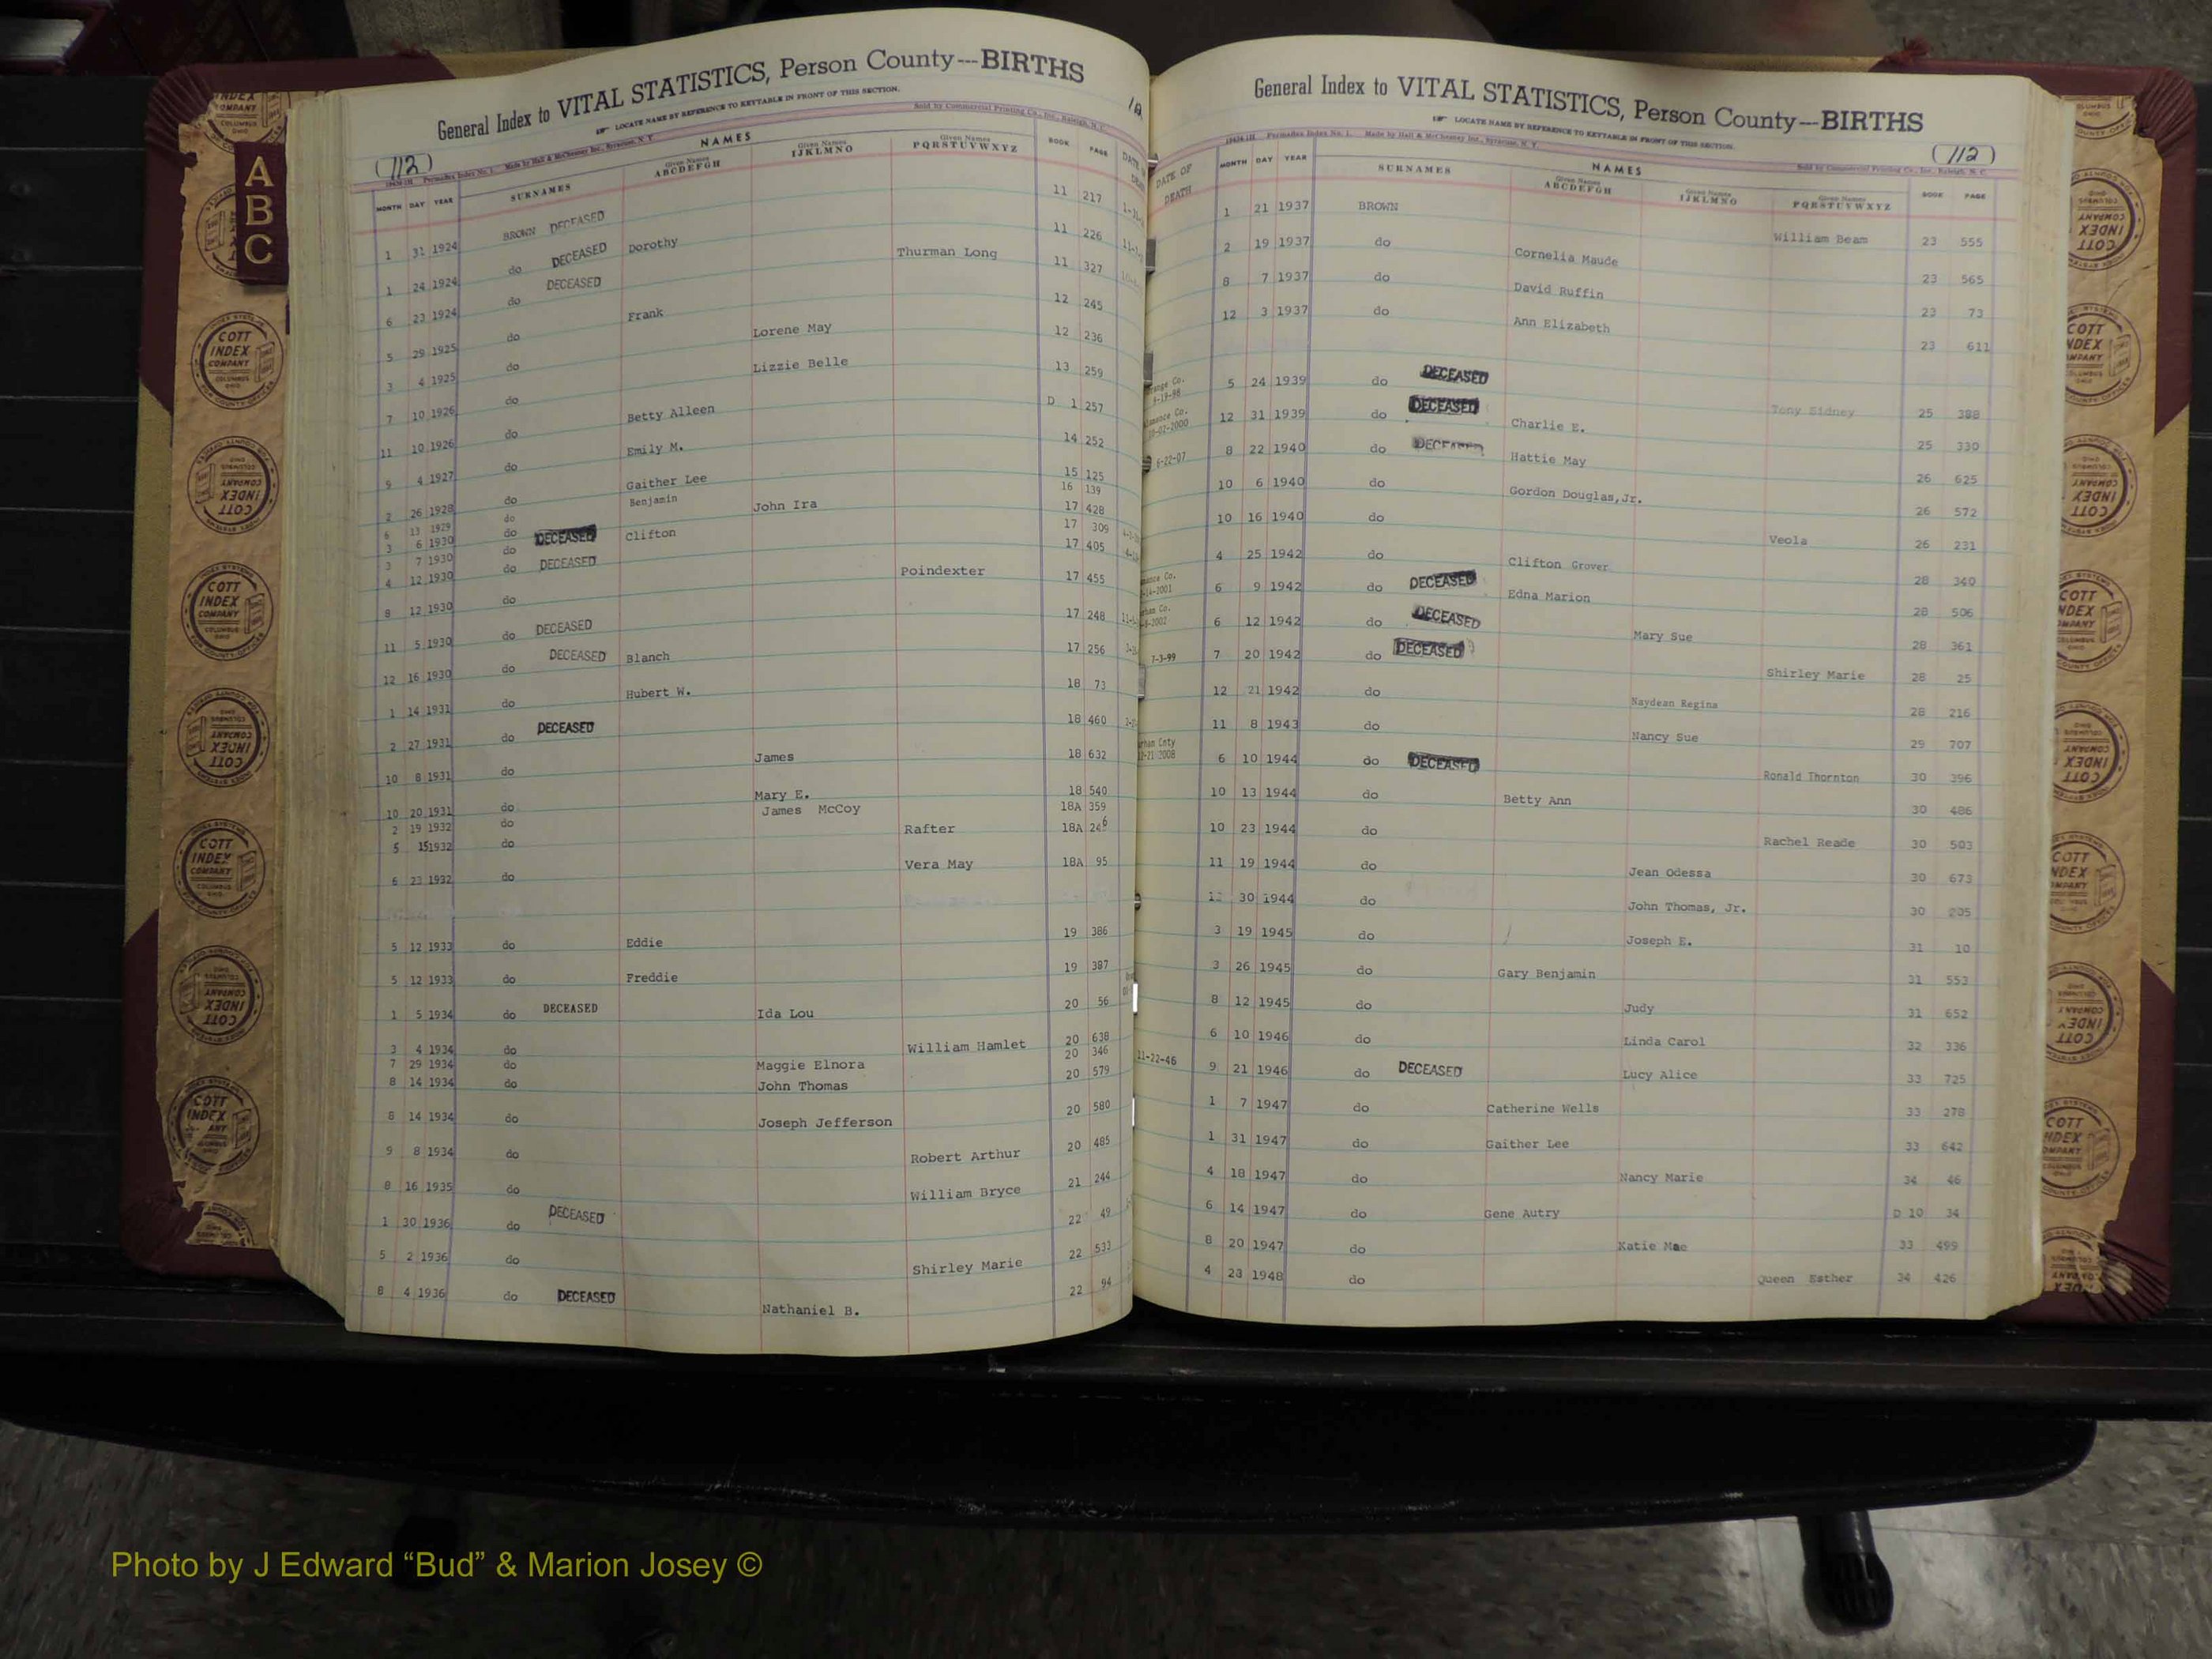 General Index to VITAL STATISTICS, Person County---BIRTHS
LOCATE NAME BY REFERENCE TO KEYTABLE IN FRONT OF THIS SECTION.
Sold by Commercial Printing Co., Inc., Raleigh, N. C.
(112)
Made by Hall & McChesney Inc., Syracuse, N. Y.
NAMES
MONTH DAY YEAR SURNAMES Given Names ABCDEFGH Given Names IJKLMNO Given Names PQRSTUVWXYZ BOOK PAGE
1 31 1924 BROWN DECEASED Dorothy 11 217
1 24 1924 do DECEASED Thurman Long 11 226
6 23 1924 do DECEASED Frank 11 327
5 29 1925 do Lorene May 12 245
3 4 1925 do Lizzie Belle 12 236
7 10 1926 do Betty Alleen 13 259
11 10 1926 do Emily M. D 1 257
9 4 1927 do Gaither Lee 14 252
2 26 1928 do Benjamin 15 125
6 13 1929 do John Ira 16 139
3 6 1930 do DECEASED Clifton 17 428
3 7 1930 do 17 309
4 12 1930 do DECEASED 17 405
8 12 1930 do Poindexter 17 455
11 5 1930 do DECEASED Blanch 17 248
12 16 1930 do DECEASED Hubert W. 17 256
1 14 1931 do 18 73
2 27 1931 do DECEASED James 18 460
10 8 1931 do Mary E. 18 632
10 20 1931 do James McCoy 18 540
2 19 1932 do Rafter 18A 359
5 15 1932 do 18A 246
6 23 1932 do Vera May 18A 95
5 12 1933 do Eddie 19 386
5 12 1933 do Freddie 19 387
1 5 1934 do DECEASED Ida Lou 20 56
3 4 1934 do William Hamlet 20 638
7 29 1934 do Maggie Elnora 20 346
8 14 1934 do John Thomas 20 579
8 14 1934 do Joseph Jefferson 20 580
9 8 1934 do Robert Arthur 20 485
8 16 1935 do William Bryce 21 244
1 30 1936 do DECEASED 22 49
5 2 1936 do Shirley Marie 22 533
8 4 1936 do DECEASED Nathaniel B. 22 94
General Index to VITAL STATISTICS, Person County---BIRTHS
LOCATE NAME BY REFERENCE TO KEYTABLE IN FRONT OF THIS SECTION.
Made by Hall & McChesney Inc., Syracuse, N. Y.
(112)
Sold by Commercial Printing Co., Inc., Raleigh, N. C.
NAMES
DATE OF DEATH MONTH DAY YEAR SURNAMES Given Names ABCDEFGH Given Names IJKLMNO Given Names PQRSTUVWXYZ BOOK PAGE
1 21 1937 BROWN William Beam 23 555
2 19 1937 do Cornelia Maude 23 565
8 7 1937 do David Ruffin 23 73
12 3 1937 do Ann Elizabeth 23 611
5 24 1939 do DECEASED Tony Sidney 25 388
12 31 1939 do DECEASED Charlie E. 25 330
6-22-07 8 22 1940 do DECEASED Hattie May 26 625
10 6 1940 do Gordon Douglas,Jr. 26 572
10 16 1940 do Veola 26 231
4 25 1942 do Clifton Grover 28 340
6 9 1942 do DECEASED Edna Marion 28 506
6 12 1942 do DECEASED Mary Sue 28 361
7-3-99 7 20 1942 do DECEASED Shirley Marie 28 25
12 21 1942 do Naydean Regina 28 216
11 8 1943 do Nancy Sue 29 707
6 10 1944 do DECEASED Ronald Thornton 30 396
10 13 1944 do Betty Ann 30 486
10 23 1944 do Rachel Reade 30 503
11 19 1944 do Jean Odessa 30 673
30 1944 do John Thomas, Jr. 30 205
3 19 1945 do Joseph E. 31 10
3 26 1945 do Gary Benjamin 31 553
8 12 1945 do Judy 31 652
6 10 1946 do Linda Carol 32 336
11-22-46 9 21 1946 do DECEASED Lucy Alice 33 725
1 7 1947 do Catherine Wells 33 278
1 31 1947 do Gaither Lee 33 642
4 18 1947 do Nancy Marie 34 46
6 14 1947 do Gene Autry D 10 34
8 20 1947 do Katie Mae 33 499
4 23 1948 do Queen Esther 34 426
A
B
C
COTT
INDEX
COMPANY
COLUMBUS
OHIO
Photo by J Edward “Bud” & Marion Josey ©